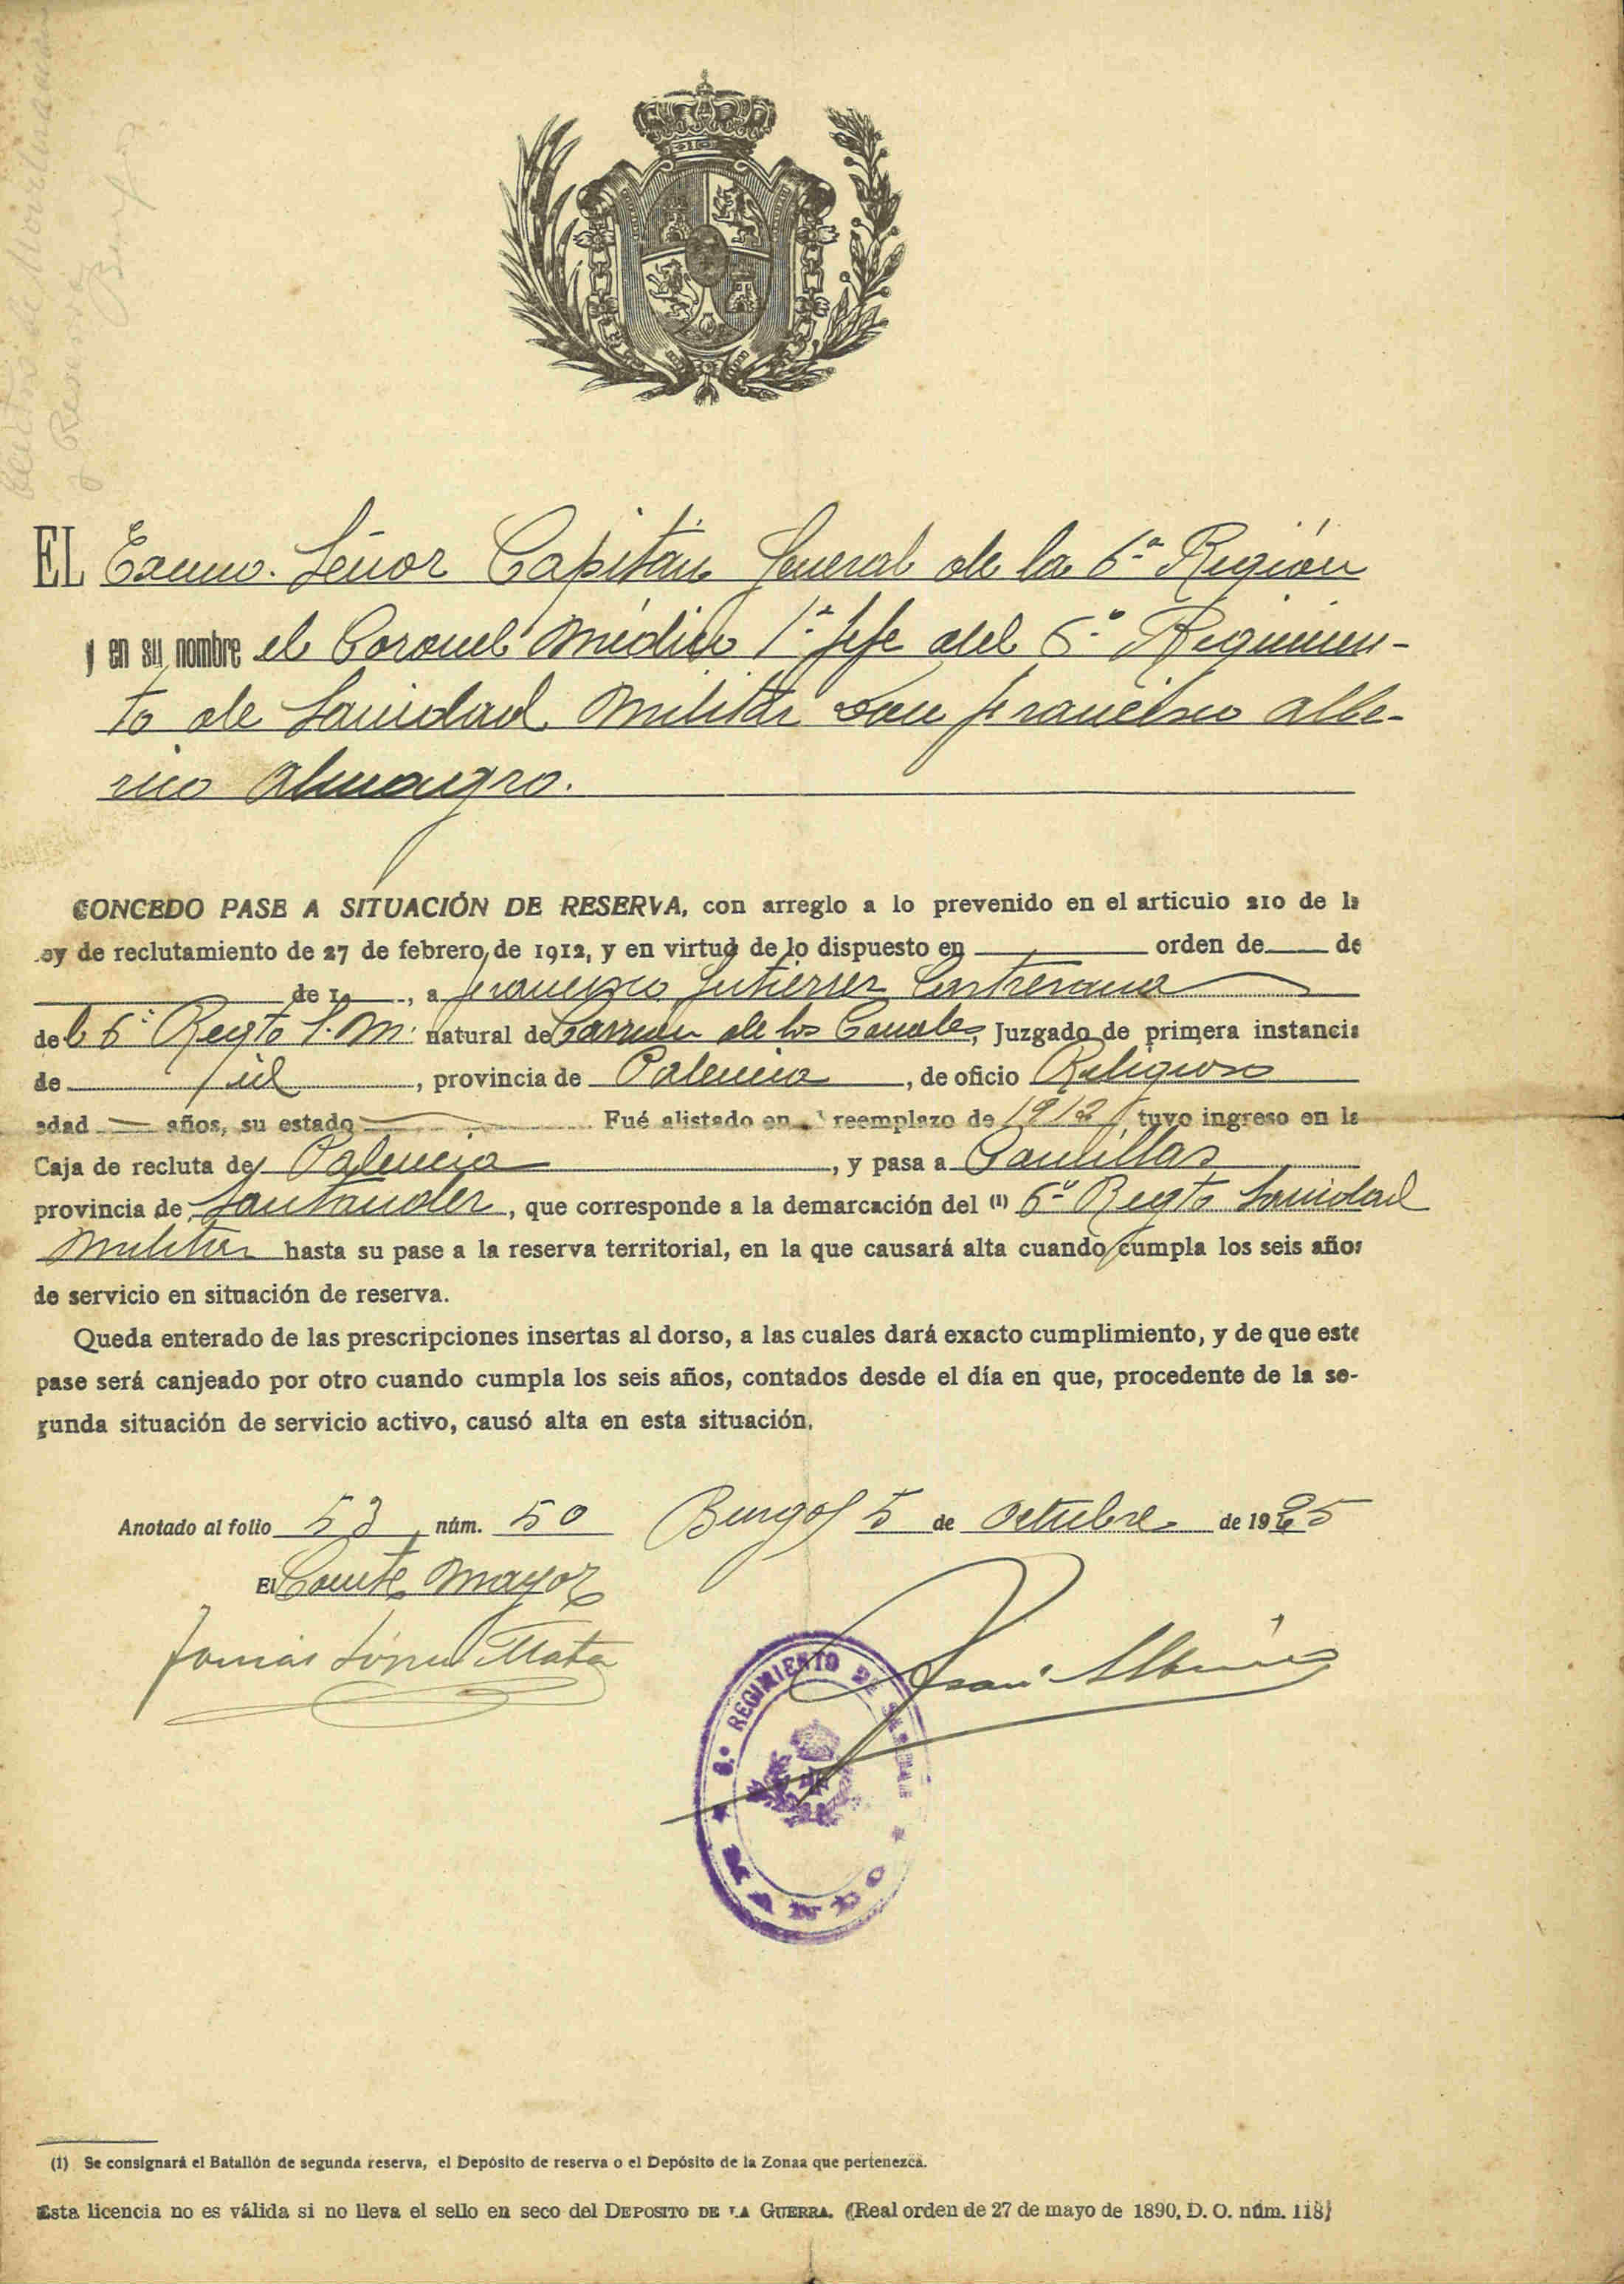 EL Excmo. Señor Capitán General de la 6.ª Región
y en su nombre el Coronel Médico 1.er Jefe del 6.º Regimien-
to de Sanidad Militar Don Francisco Albe-
rico Almagro.
CONCEDO PASE A SITUACIÓN DE RESERVA, con arreglo a lo prevenido en el articulo 210 de la
ley de reclutamiento de 27 de febrero de 1912, y en virtud de lo dispuesto en orden de de
de 19 , a Francisco Gutierrez
del 6º Regto S. M. natural de Carrión de los Condes, Juzgado de primera instancia
de id , provincia de Palencia , de oficio Religioso
edad — años, su estado — Fué alistado en reemplazo de 1912 tuvo ingreso en la
Caja de recluta de Palencia , y pasa a Comillas
provincia de Santander, que corresponde a la demarcación del (1) 6º Regto Sanidad
Militar hasta su pase a la reserva territorial, en la que causará alta cuando cumpla los seis años
de servicio en situación de reserva.
Queda enterado de las prescripciones insertas al dorso, a las cuales dará exacto cumplimiento, y de que este
pase será canjeado por otro cuando cumpla los seis años, contados desde el día en que, procedente de la se-
gunda situación de servicio activo, causó alta en esta situación.
Anotado al folio 53, núm. 50 Burgos 5 de Octubre de 1925
El Comte Mayor
Tomás López Mata
6.º REGIMIENTO DE SANIDAD
MANDO
(1) Se consignará el Batallón de segunda reserva, el Depósito de reserva o el Depósito de la Zonaa que pertenezca.
Esta licencia no es válida si no lleva el sello en seco del DEPOSITO DE LA GUERRA. (Real orden de 27 de mayo de 1890, D. O. núm. 118)